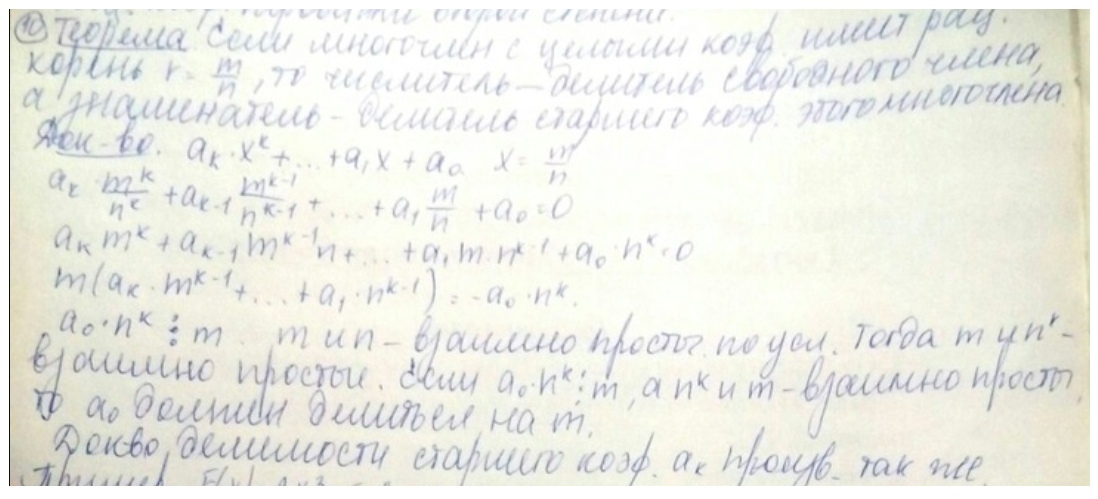 второй степени.
⑩ Теорема Если многочлен с целыми коэф. имеет рац.
корень r = m/n, то числитель – делитель свободного члена,
а знаменатель – делитель старшего коэф. этого многочлена
Док-во. aₖ·xᵏ+...+a₁x+a₀ x = m/n
aₖ·mᵏ/nᵏ + aₖ₋₁ mᵏ⁻¹/nᵏ⁻¹ + ... + a₁ m/n + a₀ = 0
aₖmᵏ + aₖ₋₁mᵏ⁻¹n + ... + a₁m·nᵏ⁻¹ + a₀·nᵏ = 0
m(aₖ·mᵏ⁻¹ + ... + a₁·nᵏ⁻¹) = -a₀·nᵏ.
a₀·nᵏ ⋮ m. m и n – взаимно просты по усл. Тогда m и nᵏ –
взаимно простые. Если a₀·nᵏ ⋮ m, а nᵏ и m – взаимно просты,
то a₀ должен делиться на m.
Док-во делимости старшего коэф. aₖ произв. так же.
Пример